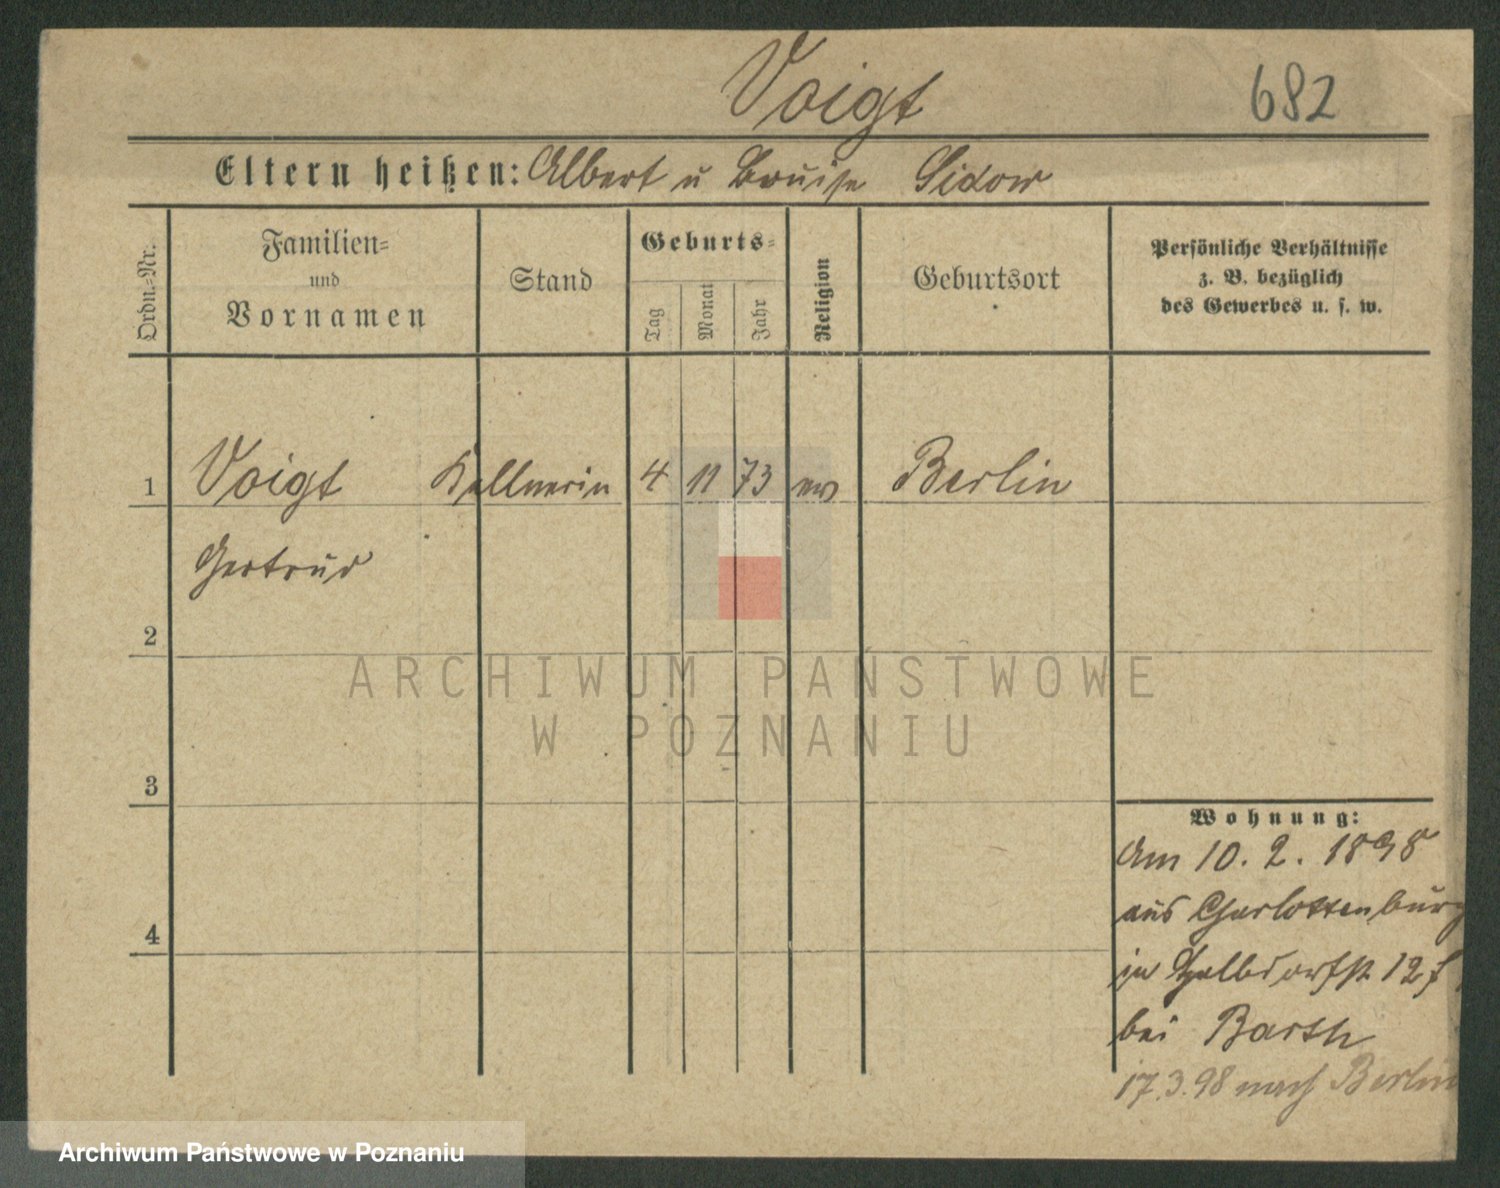 Voigt 682
Eltern heißen: Albert u Louise Sidow
Ordn.-Nr.
Familien-
und
Vornamen
Stand
Geburts-
Tag
Monat
Jahr
Religion
Geburtsort
Persönliche Verhältnisse
z. B. bezüglich
des Gewerbes u. s. w.
1 Voigt Kellnerin 4 11 73 ev Berlin
Gertrud
2
3
4
ARCHIWUM PAŃSTWOWE
W POZNANIU
Wohnung:
Am 10. 2. 1898
aus Charlottenburg
in Halbdorfstr 12
bei Barth
17.3.98 nach Berlin
Archiwum Państwowe w Poznaniu